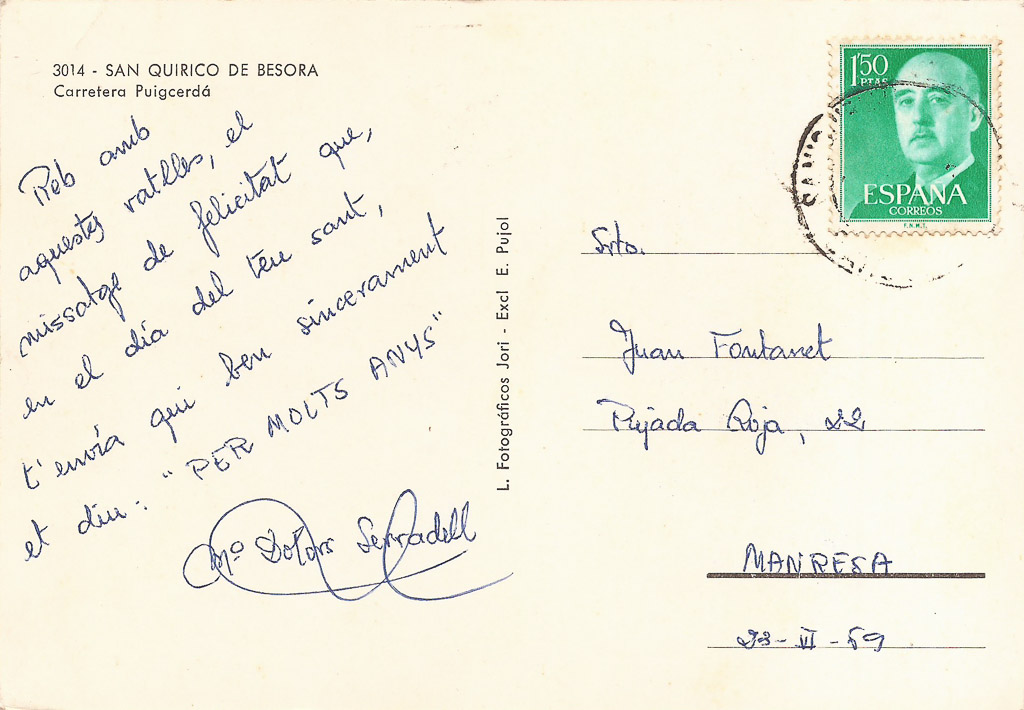 3014 - SAN QUIRICO DE BESORA
Carretera Puigcerdá
Reb amb
aquestes ratlles, el
missatge de felicitat que,
en el día del teu sant,
t'envía qui ben sincerament
et diu: "PER MOLTS ANYS"
Mª Dolors Serradell
L. Fotográficos Jori - Excl E. Pujol
1'50
PTAS
ESPAÑA
CORREOS
F.N.M.T.
Srto.
Juan Fontanet
Pujada Roja, 22
MANRESA
23-VI-69